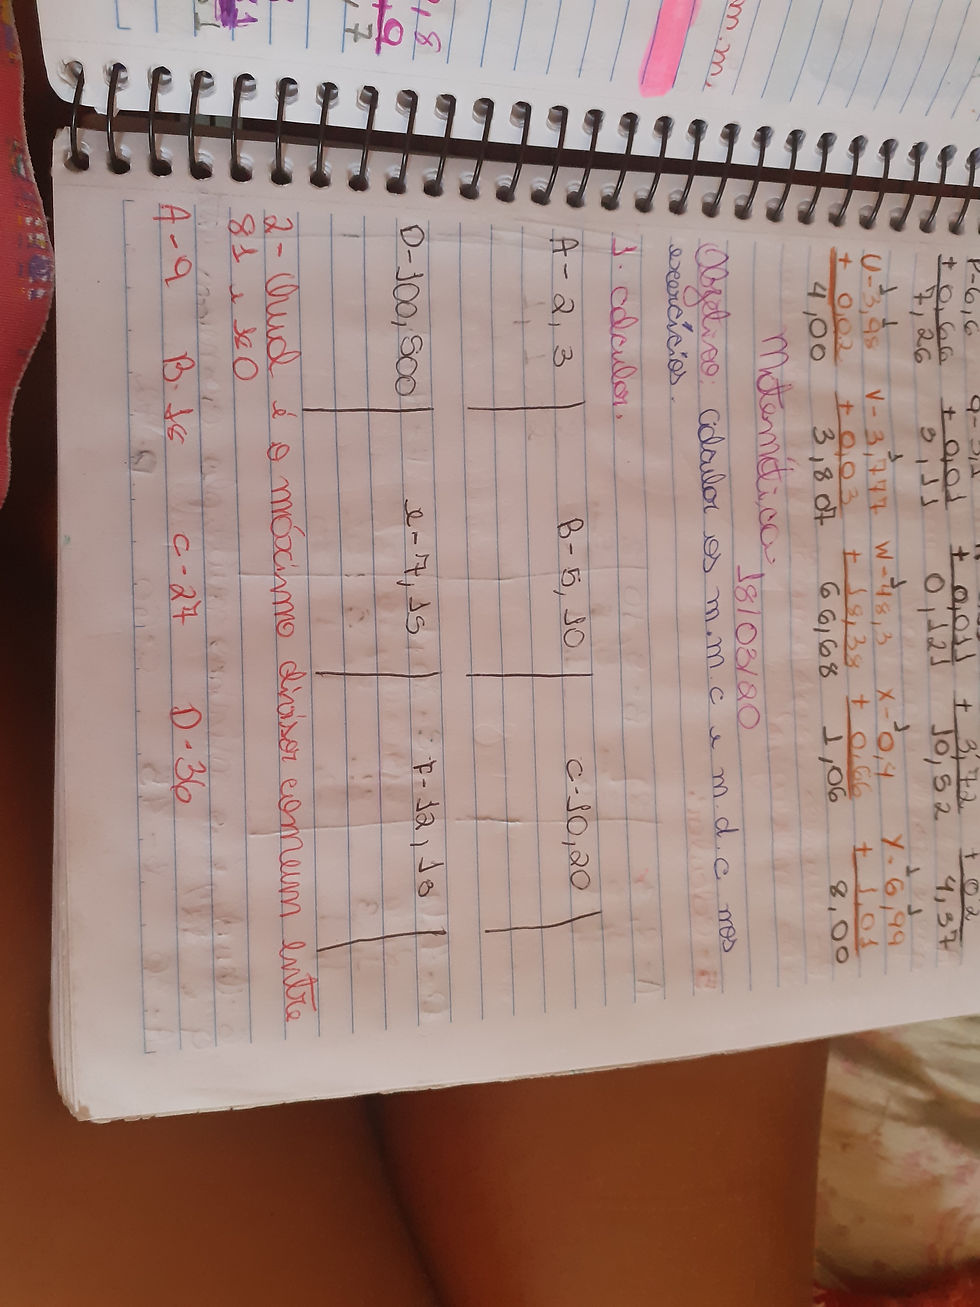 + 0,66
7,26
+ 0,01
3,11
+ 0,011
0,121
+ 3,72
10,52
+ 0,2
4,37
U-3,98 V-3,777 W-48,3 X-0,4 Y-6,99
+ 0,02 + 0,03 + 18,38 + 0,66 + 1,01
4,00 3,807 66,68 1,06 8,00
18/03/20
Matemática
Objetivo: calcular os m.m.c e m.d.c nos
exercícios.
1. calcular.
A-2,3 B-5,10 C-10,20
D-100,500 e-7,15 F-12,18
2-Qual é o máximo divisor comum entre
81 e 180
A-9 B-18 C-27 D-36